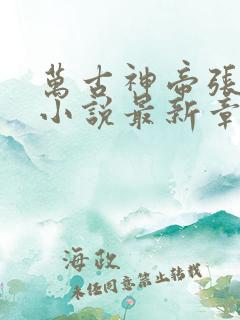 萬古神帝張
小說最新章
海政
未经同意禁止转载